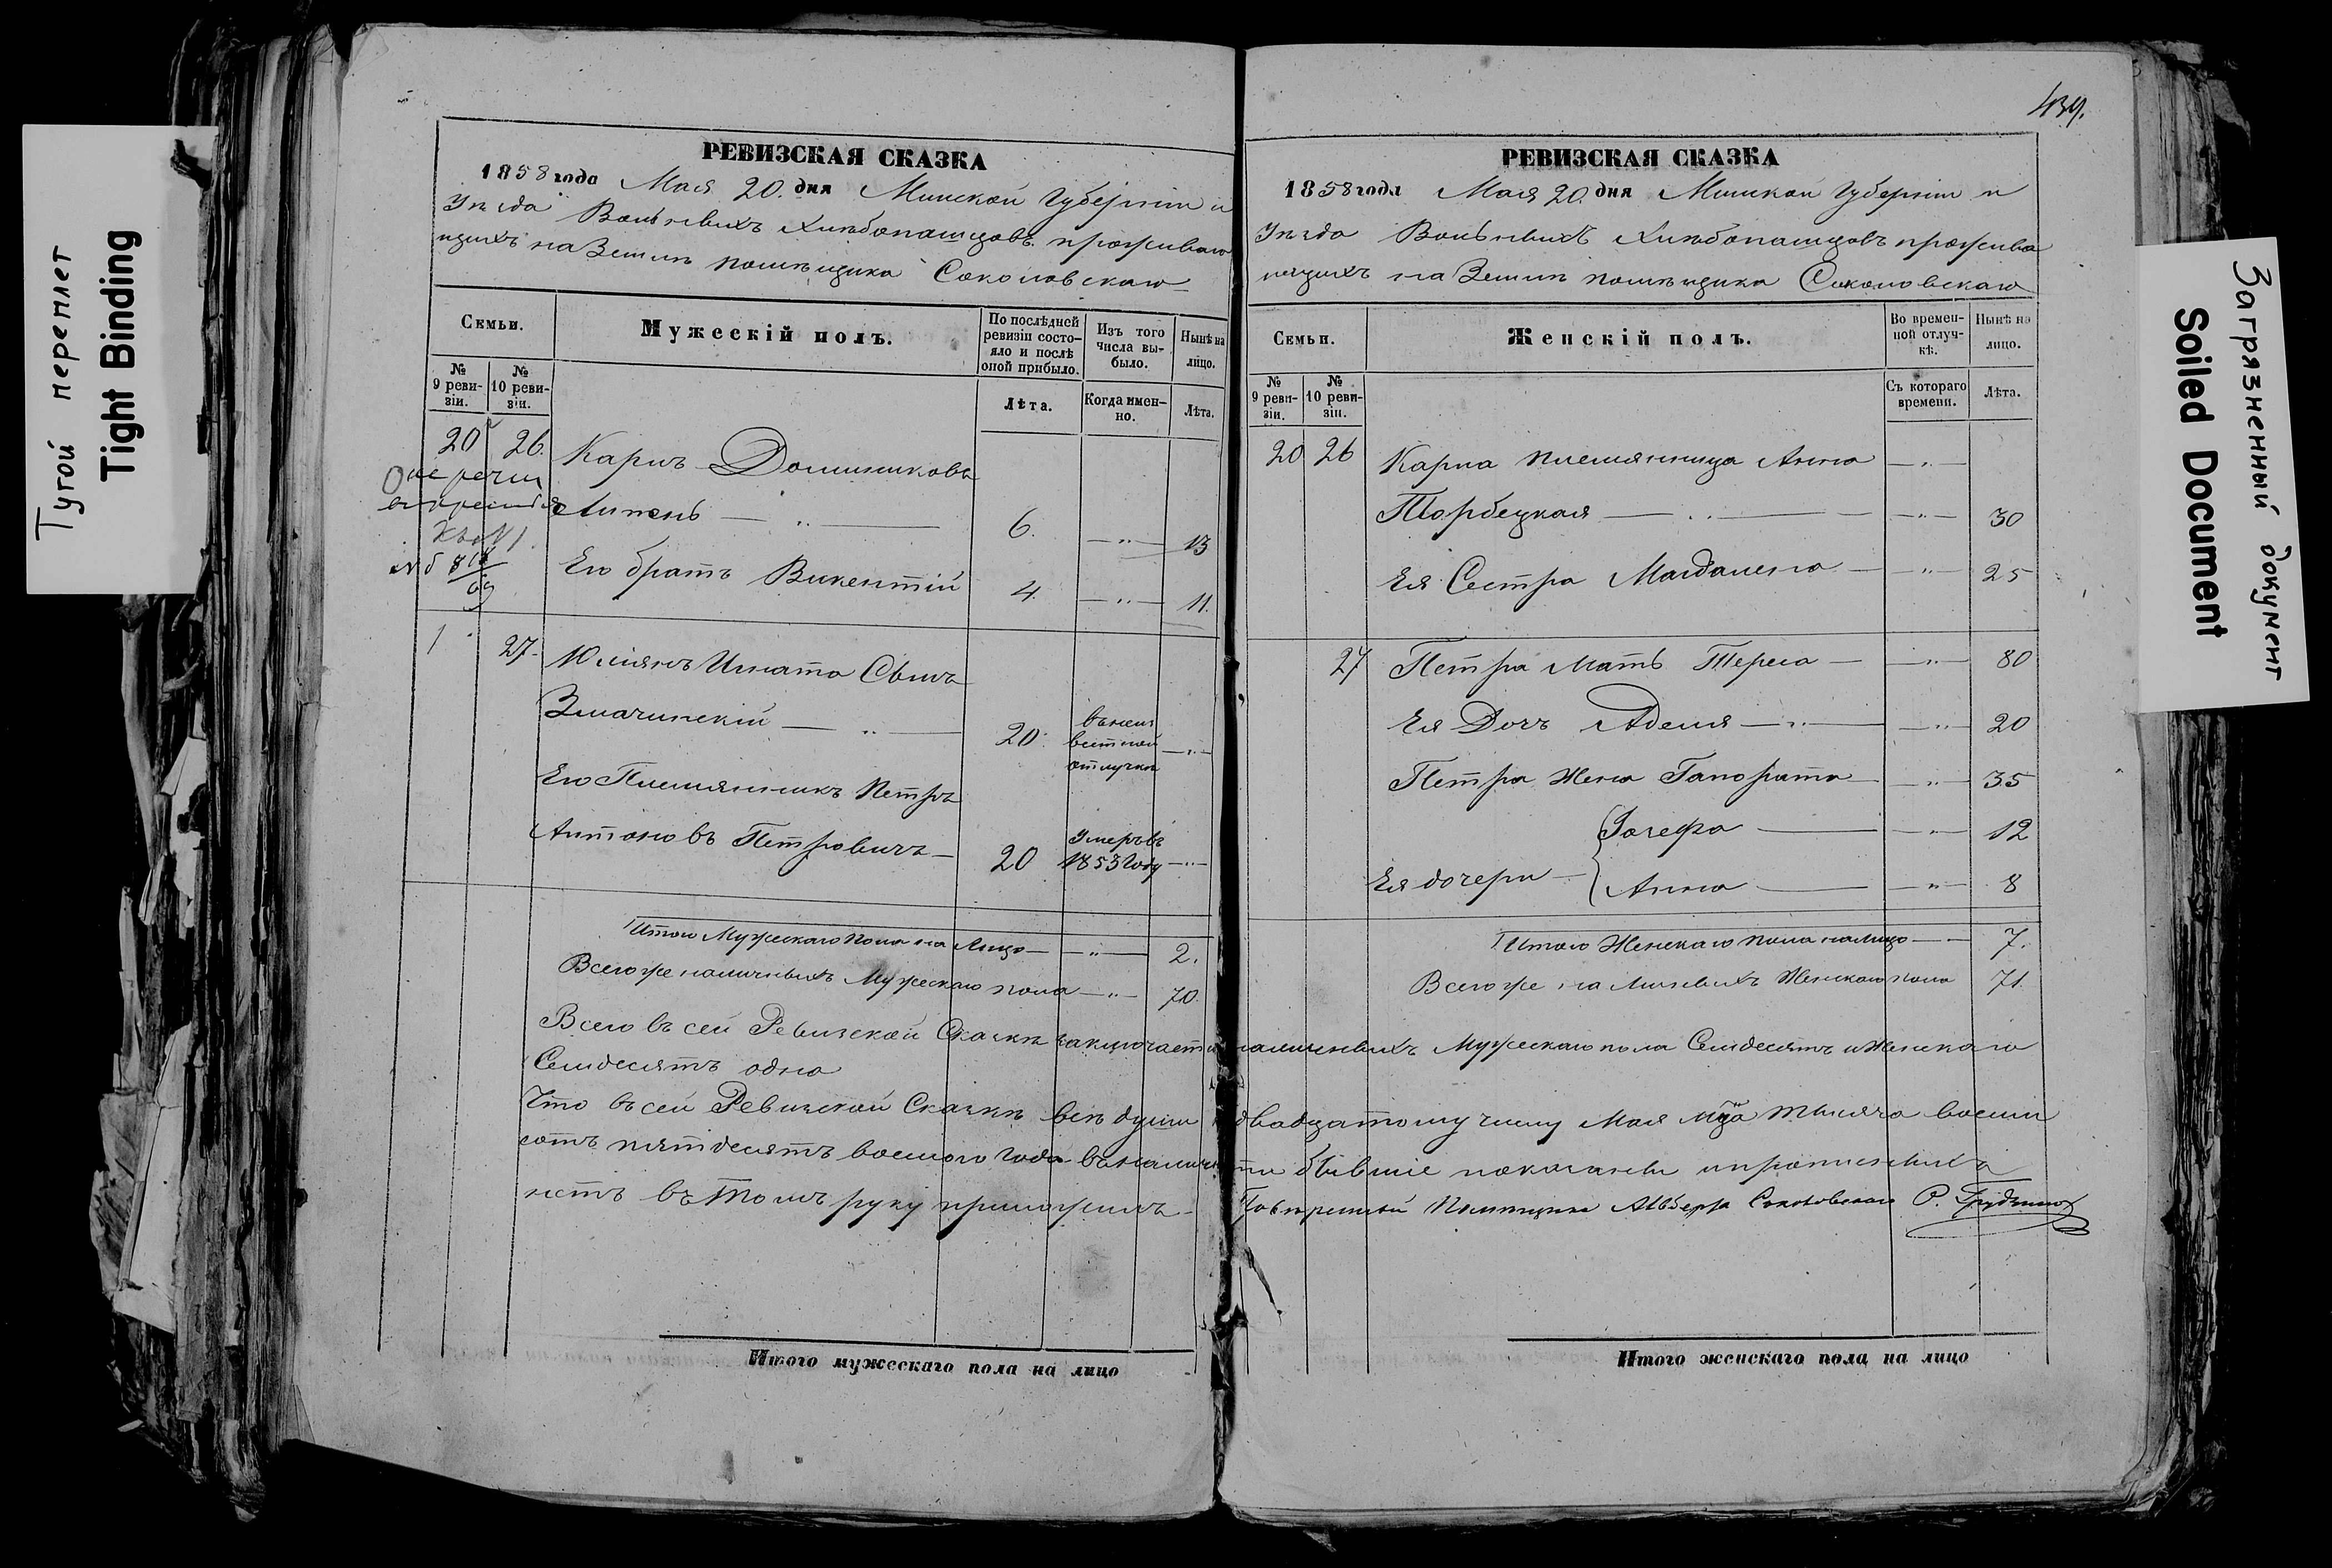 Тугой переплет
Tight Binding
РЕВИЗСКАЯ СКАЗКА
1858 года Мая 20. дня Минской Губерніи и
Уѣзда Вольныхъ Хлѣбопашцовъ проживаю
щихъ на Землѣ помѣщика Соколовскаго
Семьи.
Мужескій полъ.
По послѣдней ревизіи состояло и послѣ оной прибыло.
Изъ того числа выбыло.
Нынѣ на лицо.
№ 9 ревизіи.
№ 10 ревизіи.
Лѣта.
Когда именно.
Лѣта.
20 26. Карпъ Доминиковъ
Липень — " — 6. — " — 13
Его братъ Викентій 4. — " — 11.
1 27. Юліянъ Игната Сынъ
Змачинскій — " — 20. въ неизвестной отлучки — " —
Его Племянникъ Петръ
Антоновъ Петровичъ — 20 Умеръ въ 1853 году — " —
Итого Мужескаго пола на Лицо — " — 2.
Всего же наличныхъ Мужескаго пола — " — 70.
439.
РЕВИЗСКАЯ СКАЗКА
1858 года Мая 20. дня Минской Губерніи и
Уѣзда Вольныхъ Хлѣбопашцовъ прожива
ющихъ на Землѣ помѣщика Соколовскаго
Семьи.
Женскій полъ.
Во временной отлучкѣ.
Нынѣ на лицо.
№ 9 ревизіи.
№ 10 ревизіи.
Съ котораго времени.
Лѣта.
20 26 Карпа племянница Анна — " —
Торбецкая — " — — " — 30
Ея Сестра Магдалена — — " — 25
27 Петра Мать Тереса — — " — 80
Ея Дочь Аделя — " — — " — 20
Петра Жена Гапората — — " — 35
Ея дочери — Іозефа — — " — 12
Анна — — " — 8
Итого Женскаго пола налицо — — 7.
Всего же на Личныхъ Женскаго пола 71.
Всего въ сей Ревизской Сказкѣ заключается наличныхъ Мужескаго пола Семдесятъ и Женскаго
Семдесятъ одна
Что въ сей Ревизской Сказкѣ всѣ души двадцатому числу Мая мца тысяча восем
сотъ пятдесятъ восмого года въ наличности бывшіе показаны и прописныхъ
нетъ въ томъ руку приложилъ — Повѣренный Помѣщика Альберта Соколовскаго
Итого мужескаго пола на лицо
Итого женскаго пола на лицо
Загрязненный документ
Soiled Document